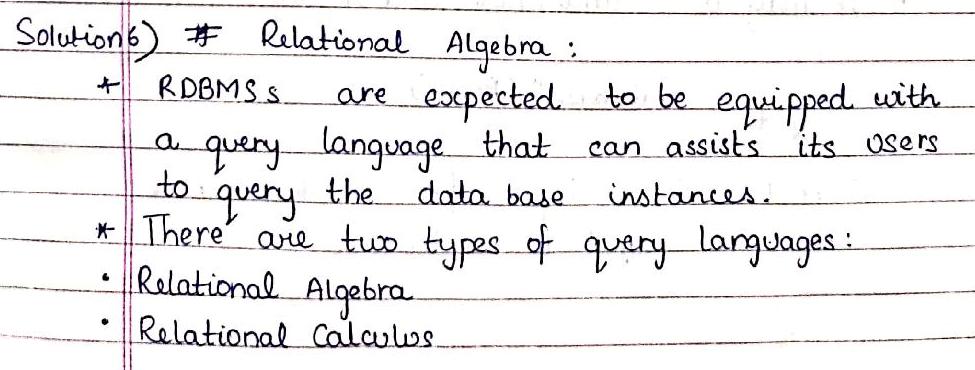 Solution6) # Relational Algebra :
* RDBMSs are expected to be equipped with
a query language that can assists its users
to query the data base instances.
* There are two types of query languages :
• Relational Algebra
• Relational Calculus